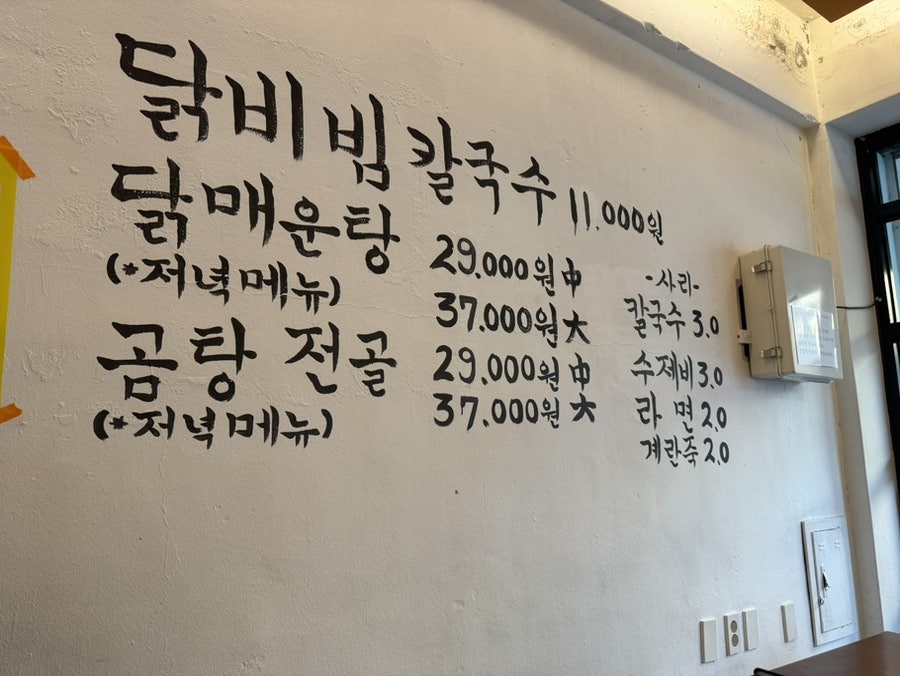 닭비빔칼국수 11.000원
닭매운탕 29.000원 中
(*저녁메뉴) 37.000원 大
곰탕 전골 29.000원 中
(*저녁메뉴) 37.000원 大
-사리-
칼국수 3.0
수제비 3.0
라면 2.0
계란죽 2.0